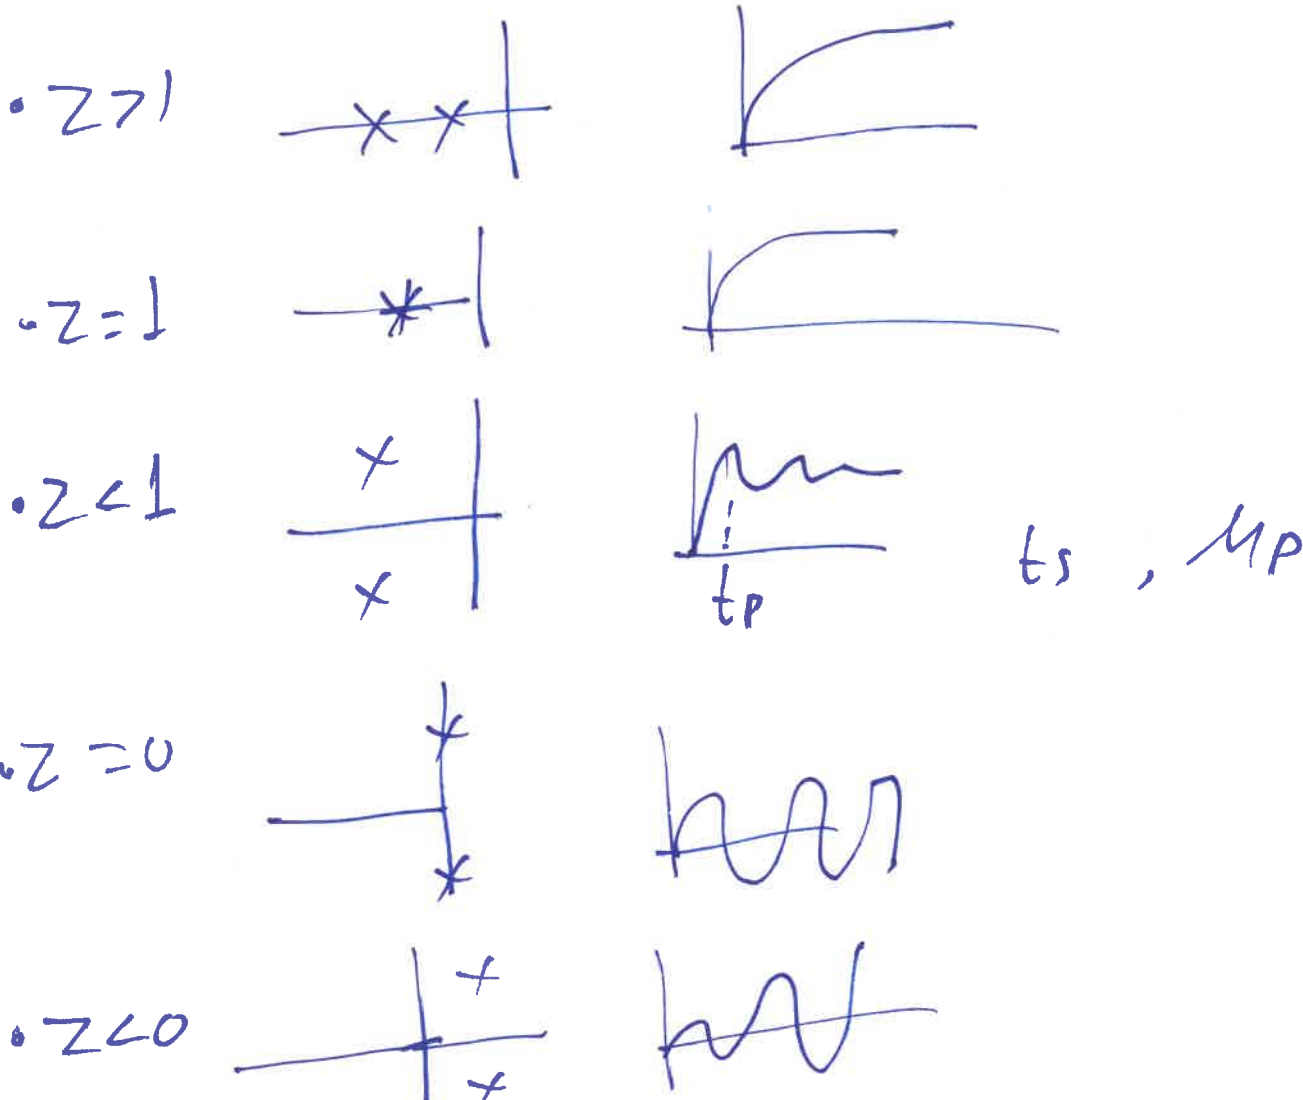 • Z>1
• Z=1
• Z<1
tp
ts , Mp
• Z=0
• Z<0